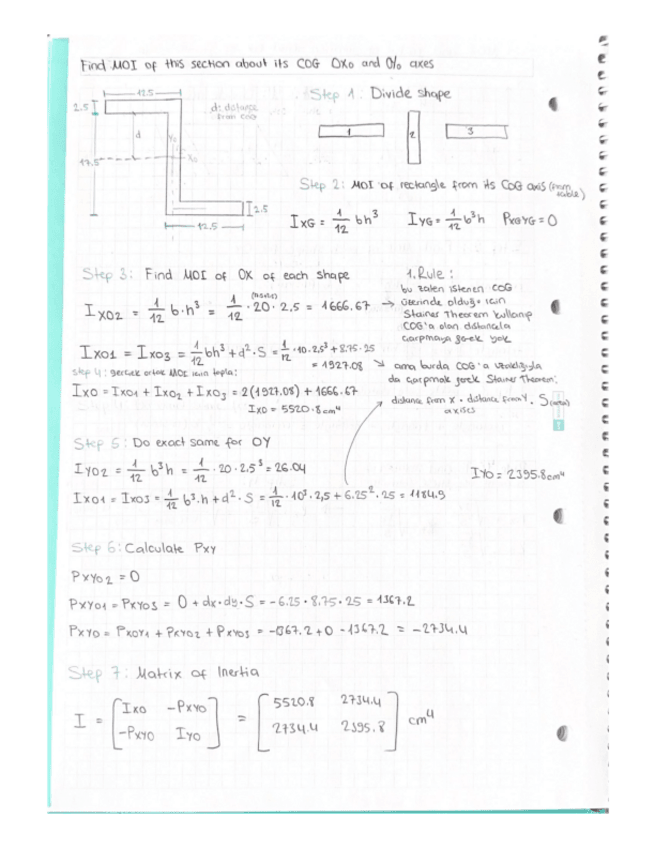 Find MOI of this section about its COG OXo and O% axes
12.5
2.5
d: distance
from COG
d
Yo
Xo
17.5
2.5
12.5
Step 1: Divide shape
1
2
3
Step 2: MOI of rectangle from its COG axis (from table)
IXG = 1/12 bh³ IYG = 1/12 b³h PXGYG = 0
Step 3: Find MOI of OX of each shape
IXO2 = 1/12 b·h³ = 1/12 · 20 · 2.5 = 1666.67
1. Rule:
bu zaten istenen COG
üzerinde olduğu icin
Stainer Theorem kullanıp
COG'a olan distancela
çarpmaya gerek yok
IXO1 = IXO3 = 1/12 bh³ + d² · S = 1/12 · 10 · 2.5³ + 8.75 · 25
= 1927.08
ama burda COG'a uzaklığıyla
da çarpmak gerek Stainer Theorem:
distance from x · distance from Y · S (area)
axises
step 4: gercek ortak MOI icin topla:
IXO = IXO1 + IXO2 + IXO3 = 2(1927.08) + 1666.67
IXO = 5520.8 cm⁴
Step 5: Do exact same for OY
IYO2 = 1/12 b³h = 1/12 · 20 · 2.5³ = 26.04
IYO = 2395.8 cm⁴
IXO1 = IXO3 = 1/12 b³·h + d² · S = 1/12 · 10³ · 2,5 + 6.25² · 25 = 1184.9
Step 6: Calculate Pxy
PXYO2 = 0
PXYO1 = PXYO3 = 0 + dx·dy·S = -6.25 · 8.75 · 25 = 1367.2
PXYO = PXOY1 + PXYO2 + PXYO3 = -1367.2 + 0 - 1367.2 = -2734.4
Step 7: Matrix of Inertia
I = [IXO -PXYO = [5520.8 2734.4 cm⁴
-PXYO IYO] 2734.4 2395.8]